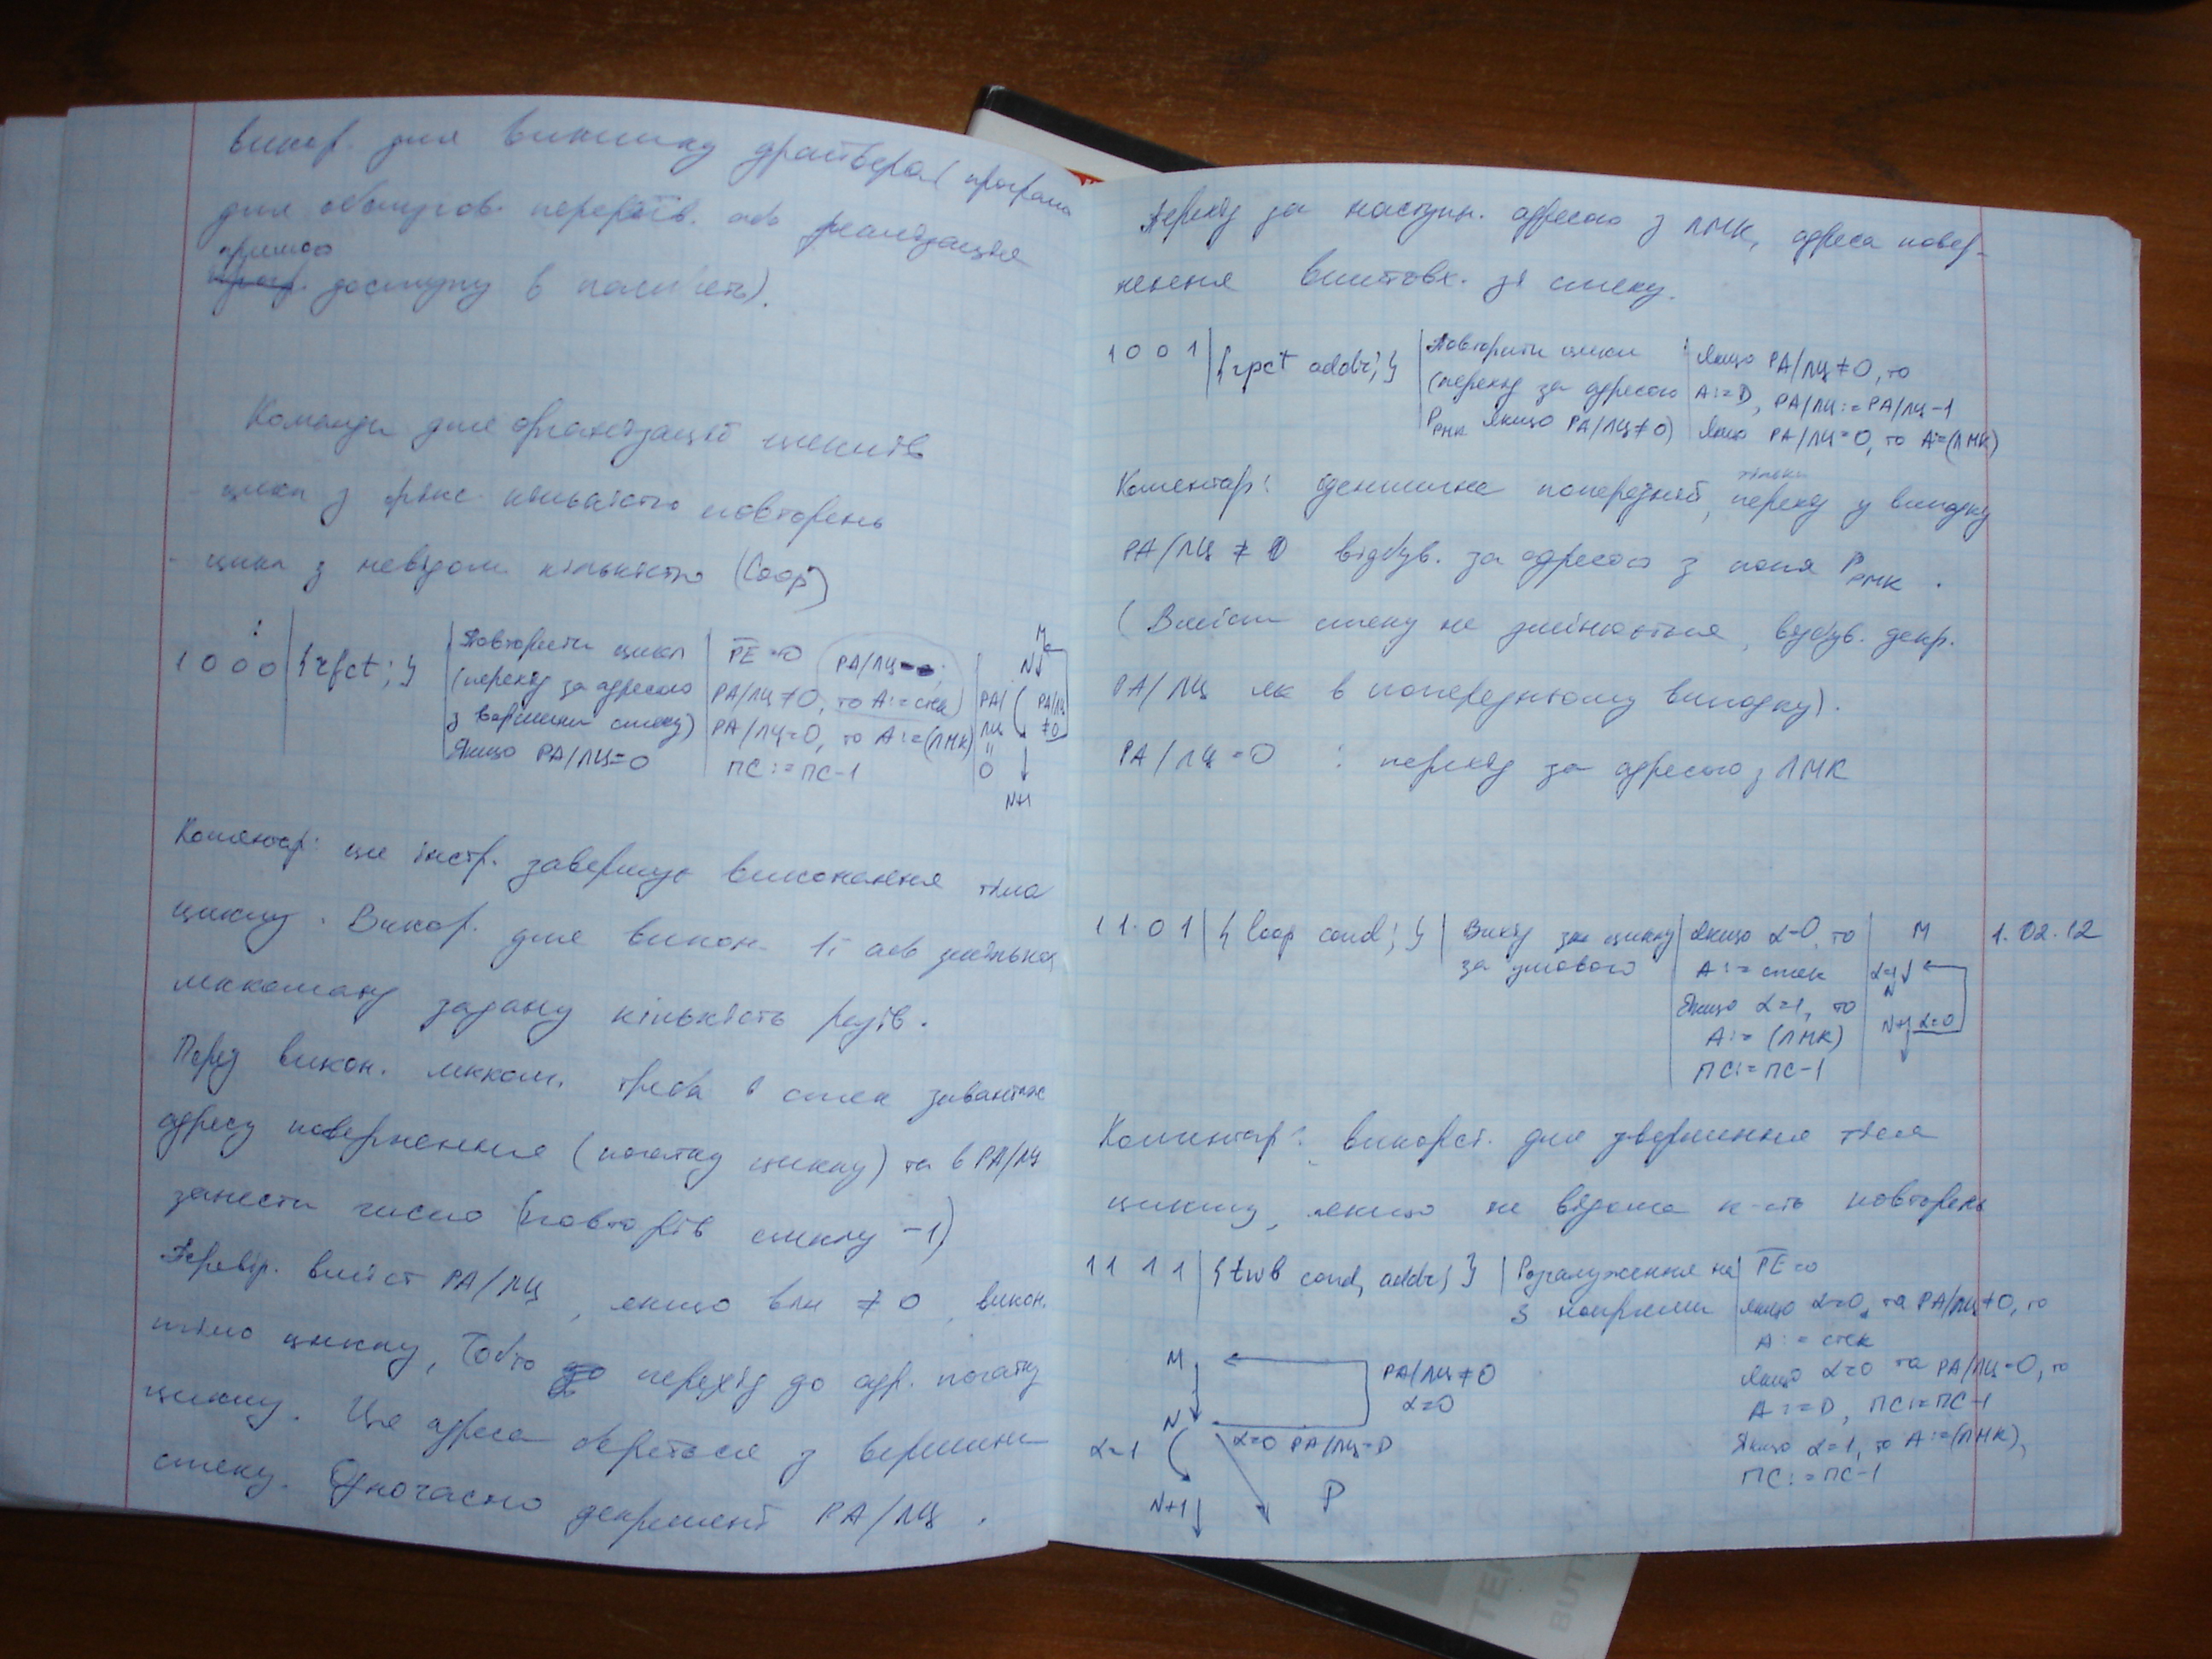 викор. для виклику драйвера (програма
для обслугов. перерив. або реалізація
прямого
доступу в пам'ять).
Команди для організації циклів
- цикл з фікс. кількістю повторень
- цикл з невідом. кількістю (loop)
1 0 0 0 | {rfct;} | Повторити цикл | PE=0 РА/ЛЦ
(перехід за адресою | РА/ЛЦ≠0, то А:=стек
з вершини стеку) | РА/ЛЦ=0, то А:=(ЛМК)
Якщо РА/ЛЦ=0 | ПС:=ПС-1
РА/ЛЦ
"
0
M
N
РА/ЛЦ
≠0
N+1
Коментар: ця інстр. завершує виконання тіла
циклу. Викор. для викон. 1ї або декілька
мікрокоманд задану кількість разів.
Перед викон. мкком. треба в стек завантаж
адресу повернення (початку циклу) та в РА/ЛЦ
занести число (повторів циклу -1)
Перевір. вміст РА/ЛЦ, якщо він ≠ 0, викон.
тіло циклу, тобто перехід до адр. початку
циклу. Ця адреса береться з вершини
стеку. Одночасно декремент РА/ЛЦ.
Перехід за наступн. адресою з ЛМК, адреса повер-
нення виштовх. зі стеку.
1 0 0 1 | {rpct addr;} | Повторити цикл | Якщо РА/ЛЦ≠0, то
(перехід за адресою | А:=D, РА/ЛЦ:=РА/ЛЦ-1
Р РМК якщо РА/ЛЦ≠0) | Якщо РА/ЛЦ=0, то А:=(ЛМК)
тільки
Коментар: ідентична попередній, перехід у випадку
РА/ЛЦ ≠ 0 відбув. за адресою з поля Р РМК.
(Вміст стеку не змінюється, відбув. декр.
РА/ЛЦ як в попередньому випадку).
РА/ЛЦ=0 : перехід за адресою з ЛМК
1 1 0 1 | {loop cond;} | Вихід з циклу | Якщо α=0, то | M | 1.02.12
за умовою | А:=стек | α=1
Якщо α=1, то | N
А:=(ЛМК) | N+1 α=0
ПС:=ПС-1
Коментар: використ. для завершення тіла
циклу, якщо не відома к-сть повторень
1 1 1 1 | {twb cond, addr;} | Розгалуження на | PE=0
3 напрямки | Якщо α=0, та РА/ЛЦ≠0, то
А:=стек
Якщо α=0 та РА/ЛЦ=0, то
А:=D, ПС:=ПС-1
Якщо α=1, то А:=(ЛМК),
ПС:=ПС-1
M
РА/ЛЦ≠0
α=0
N
α=0 РА/ЛЦ=0
α=1
N+1
Р